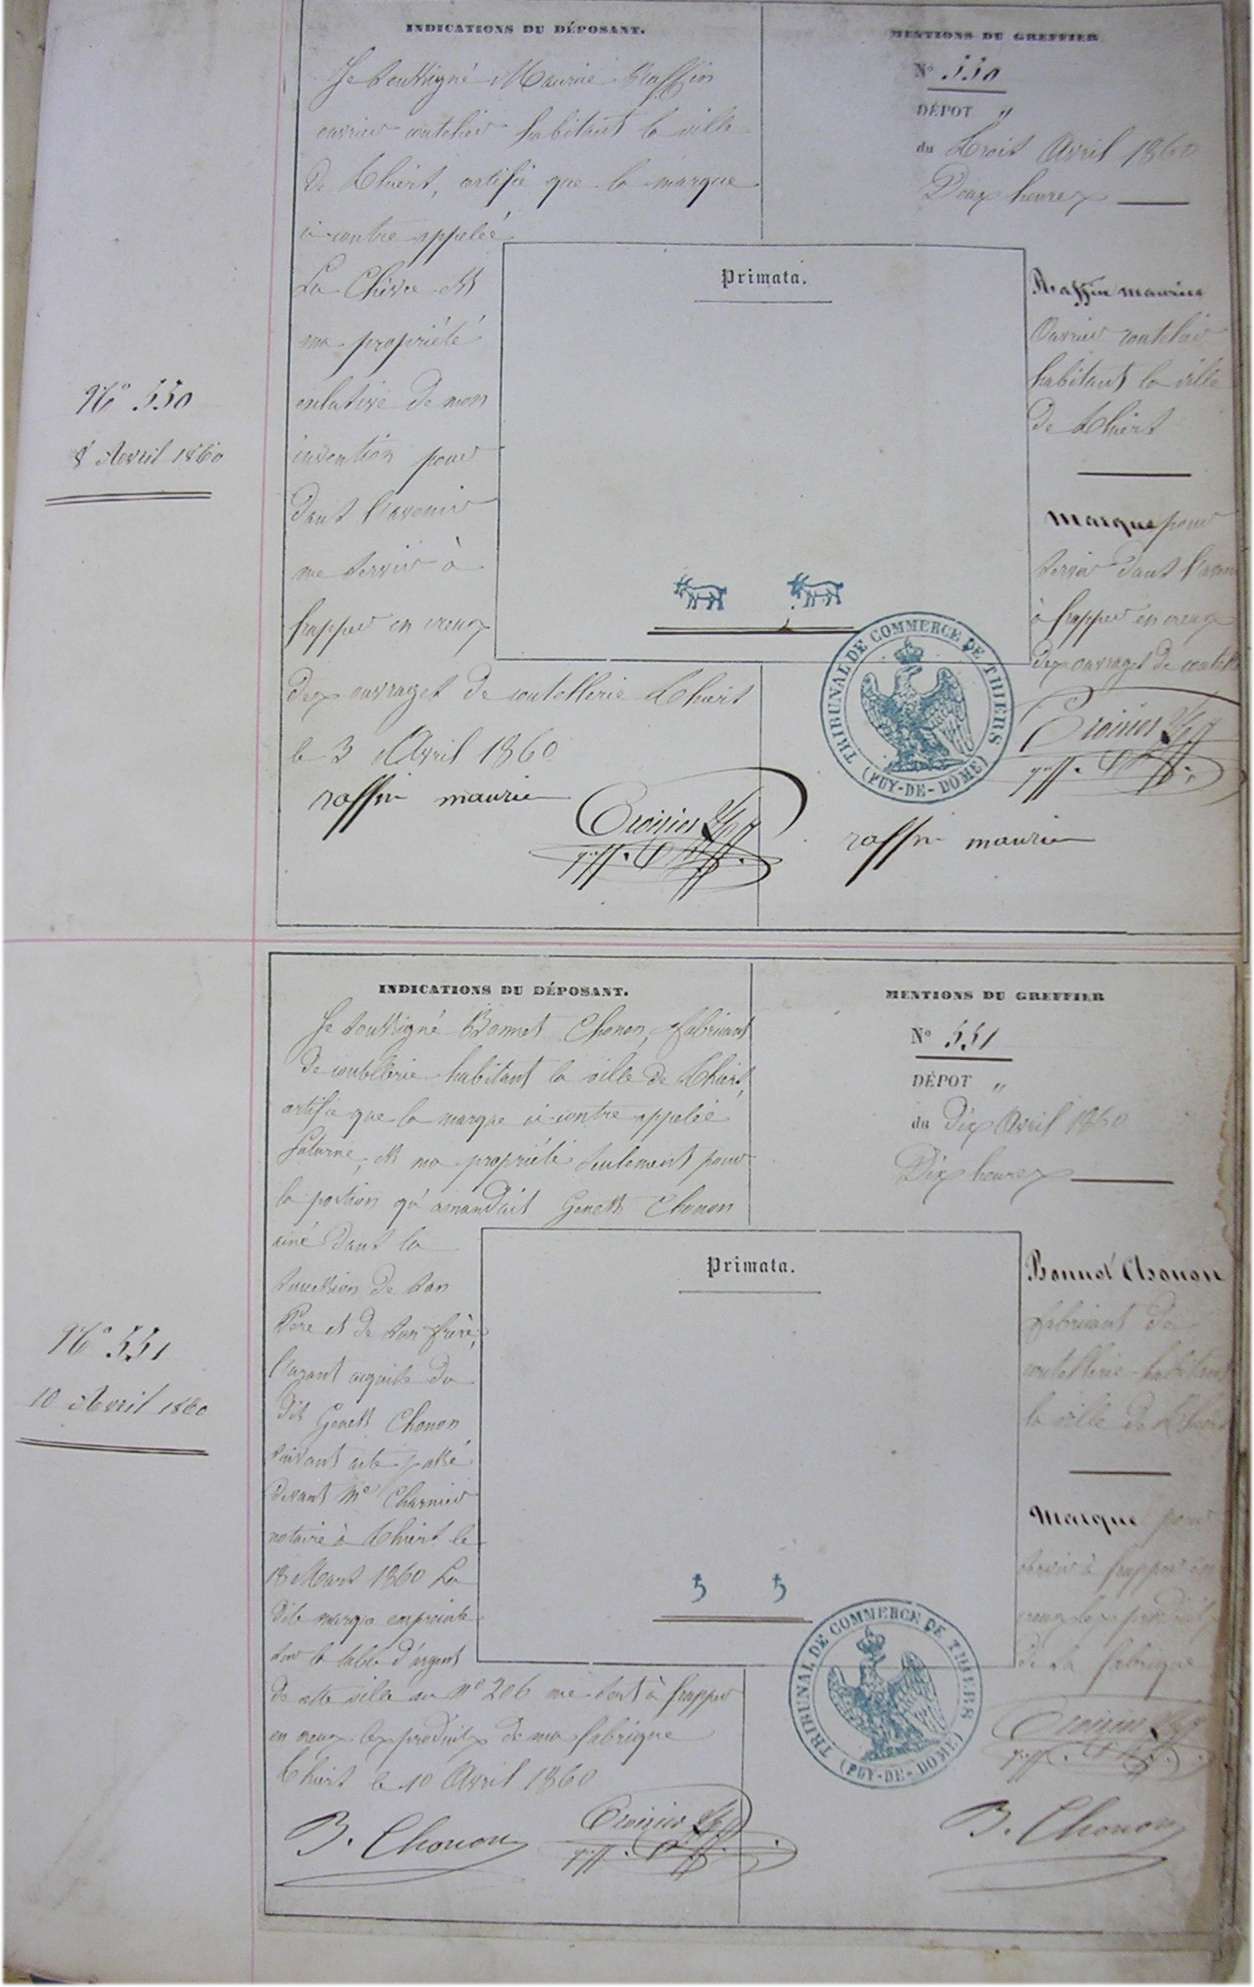 N° 550
8 Avril 1860
INDICATIONS DU DÉPOSANT.
Je soussigné Maurice Raffin
ouvrier coutelier habitant la ville
de Thiers, certifie que la marque
ci-contre appelée
La Chèvre est
ma propriété
de mon
invention pour
dans l'avenir
me servir à
frapper en creux
des ouvrages de coutellerie Thiers
le 3 Avril 1860
raffin maurice
Croisier
MENTIONS DU GREFFIER
N° 550
DÉPOT "
du Trois Avril 1860
Deux heures
Primata.
Raffin maurice
Ouvrier coutelier
habitant la ville
de Thiers
Marque pour
servir dans l'avenir
à frapper en creux
des ouvrages de
TRIBUNAL DE COMMERCE DE THIERS
(PUY-DE-DOME)
Croisier
raffin maurice
N° 551
10 Avril 1860
INDICATIONS DU DÉPOSANT.
Je soussigné Bonnet Chonon, fabricant
de coutellerie habitant la ville de Thiers,
certifie que la marque ci-contre appelée
Saturne, est ma propriété seulement pour
la portion qu'amandait Genest Chonon
ainé dans la
succession de son
Père et de son frère,
l'ayant acquise du
dit Genest Chonon
suivant acte passé
devant Me
notaire à Thiers le
18 Mars 1860 La
dite marque empreinte
sur la table d'argent
de cette ville au N° 206 me sert à frapper
en creux les produits de ma fabrique
Thiers le 10 Avril 1860
B. Chonon
Croisier
MENTIONS DU GREFFIER
N° 551
DÉPOT "
du Dix Avril 1860
Dix heures
Primata.
Bonnet Chonon
fabricant de
coutellerie habitant
la ville de Thiers
Marque pour
servir à frapper en
creux les produits
de sa fabrique
TRIBUNAL DE COMMERCE DE THIERS
(PUY-DE-DOME)
Croisier
B. Chonon